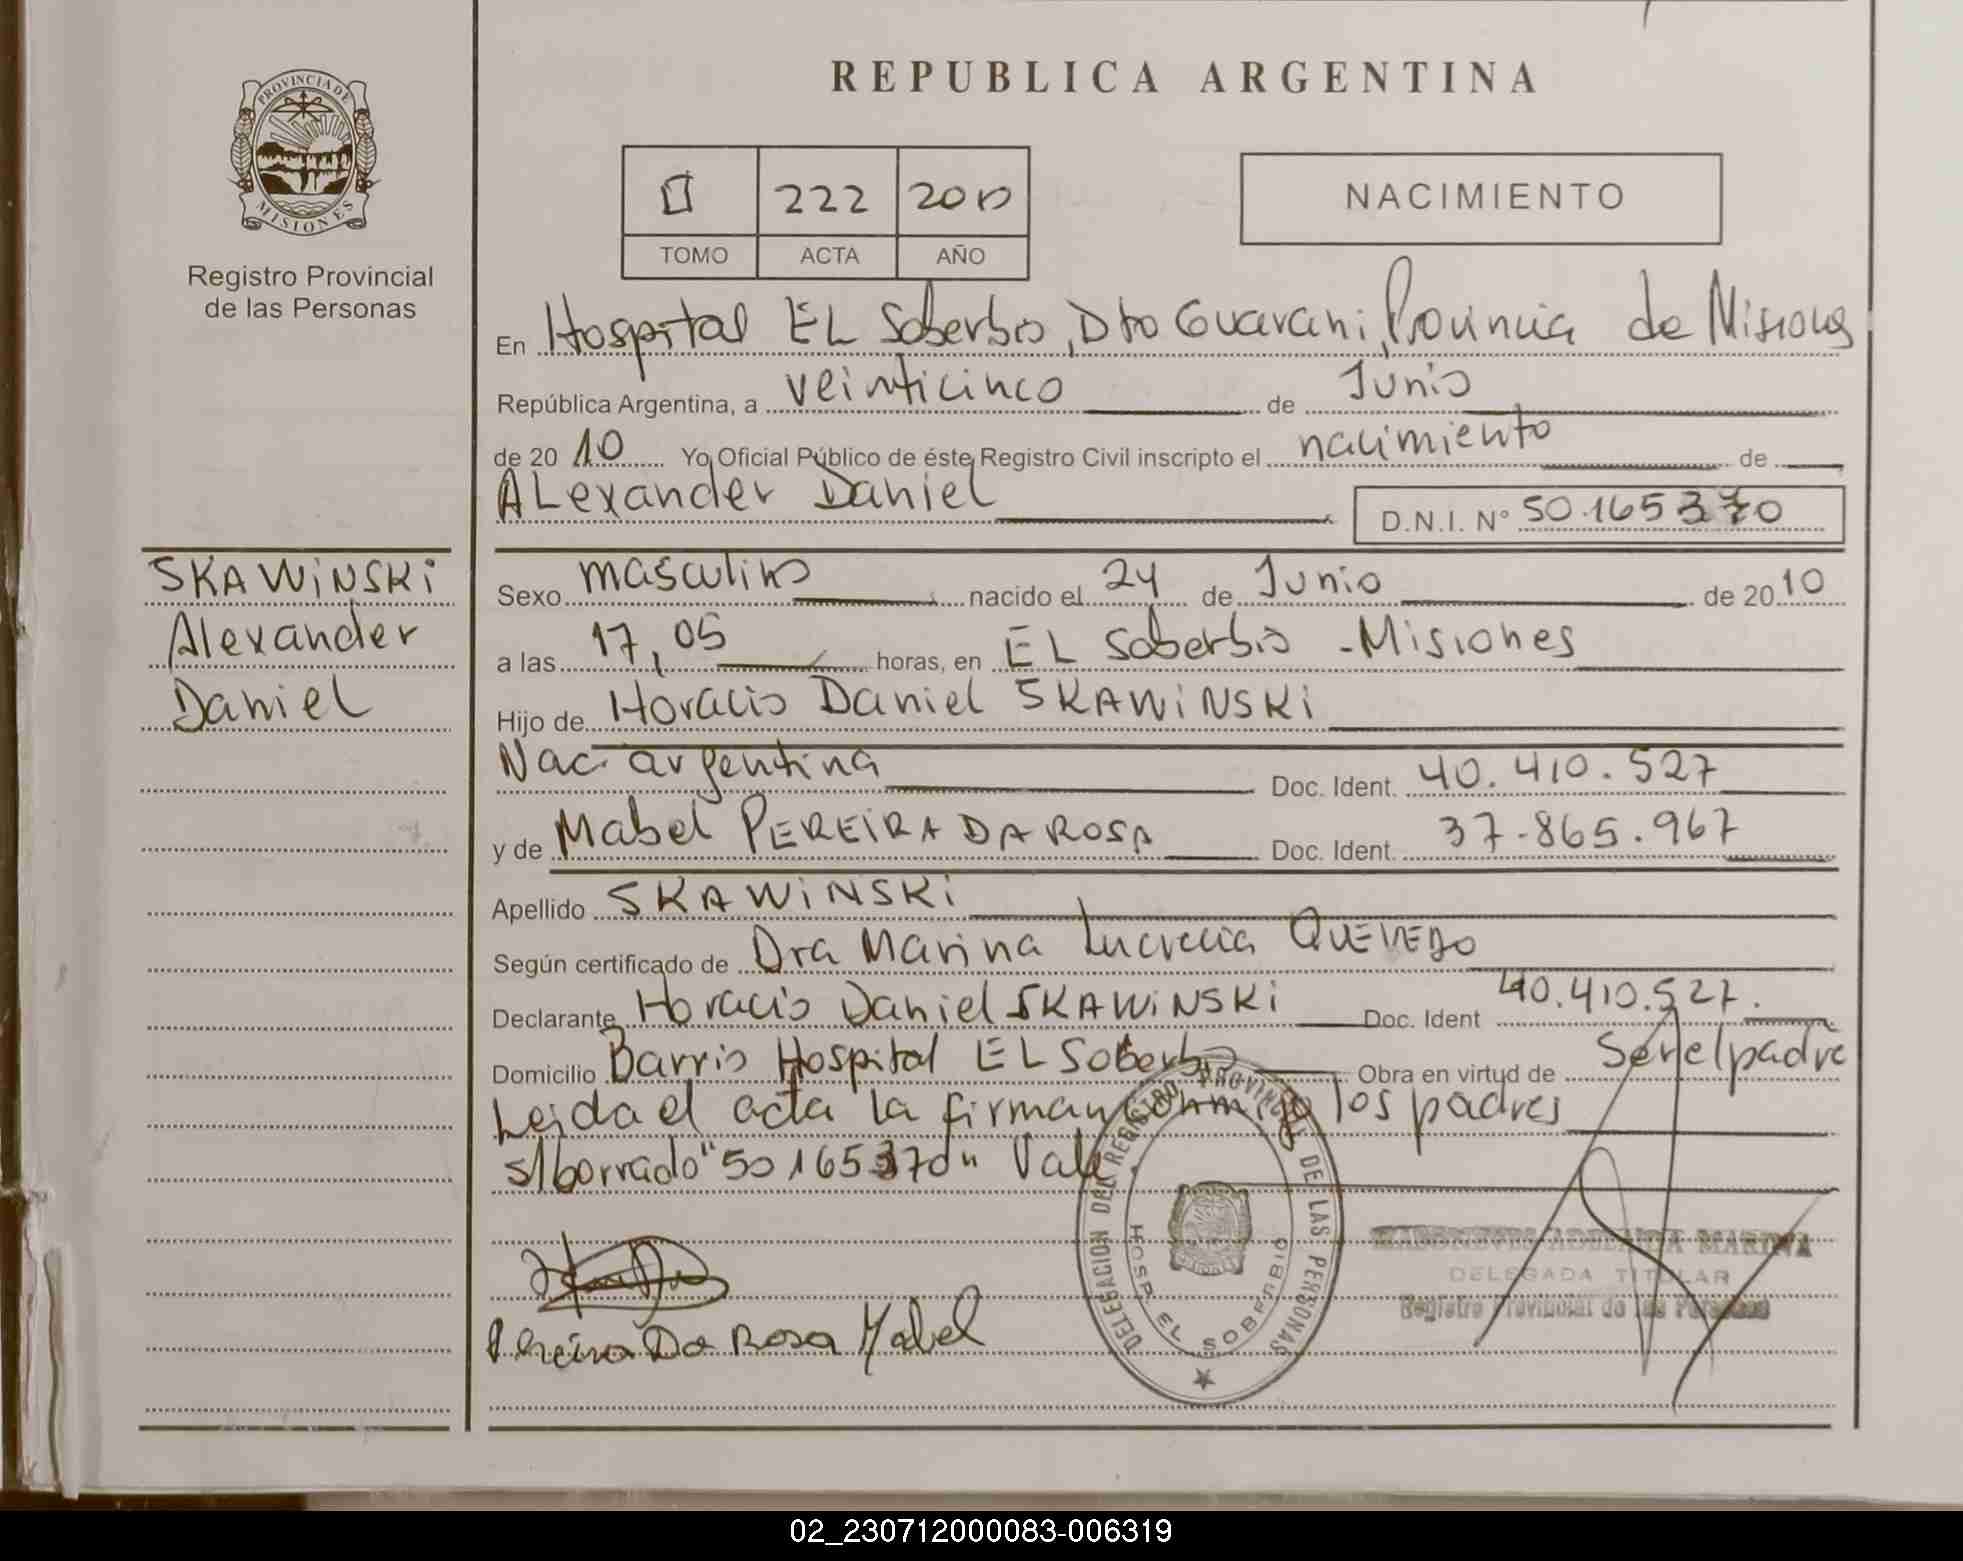 REPUBLICA ARGENTINA
PROVINCIA DE
MISIONES
Registro Provincial
de las Personas
222 2010
TOMO ACTA AÑO
NACIMIENTO
En Hospital EL Soberbio, Dto Guarani, Provincia de Misiones
República Argentina, a veinticinco de Junio
de 2010 Yo Oficial Público de éste Registro Civil inscripto el nacimiento de
ALexander Daniel D.N.I. N° 50.165370
SKAWiNSKi
Alexander
Daniel
Sexo masculino nacido el 24 de Junio de 2010
a las 17,05 horas, en EL Soberbio - Misiones
Hijo de Horacio Daniel SKAWiNSKi
Nac. argentina Doc. Ident. 40.410.527
y de Mabel PEREiRA DA ROSA Doc. Ident. 37.865.967
Apellido SKAWiNSKi
Según certificado de Dra Marina Lucrecia QUEVEDO
Declarante Horacio Daniel SKAWiNSKi Doc. Ident 40.410.527.
Domicilio Barrio Hospital EL Soberbio Obra en virtud de Ser el padre
Leida el acta la firman conmigo los padres
s/borrado "50165370" Vale
DELEGACION DEL REGISTRO PROVINCIAL DE LAS PERSONAS
HOSP. EL SOBERBIO
ADELAIDA MARINA
DELEGADA TITULAR
Registro Provincial de las Personas
Pereira Da Rosa Mabel
02_230712000083-006319